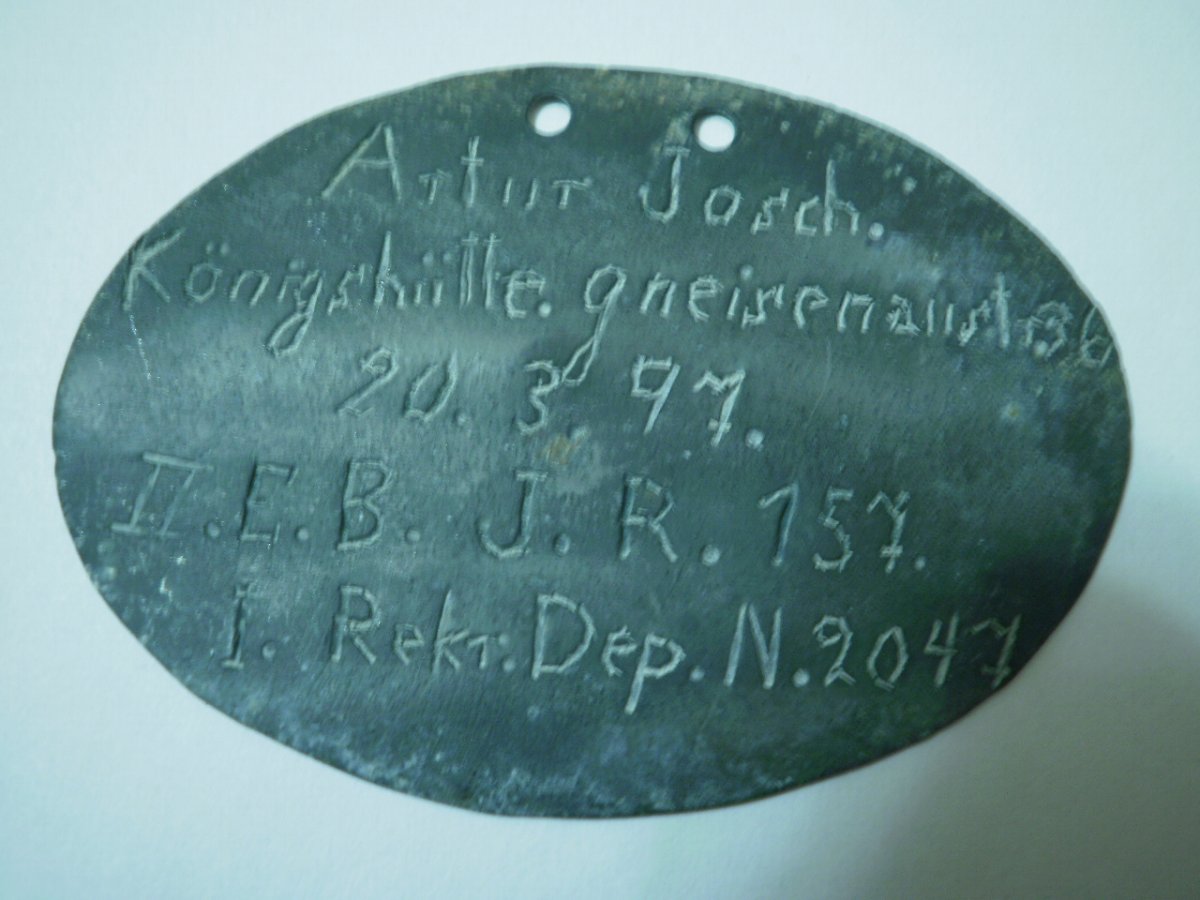 Artur Josch.
Königshütte. gneisenaustr36
20. 3. 97.
II. E. B. J. R. 157.
I. Rekr. Dep. N. 2047